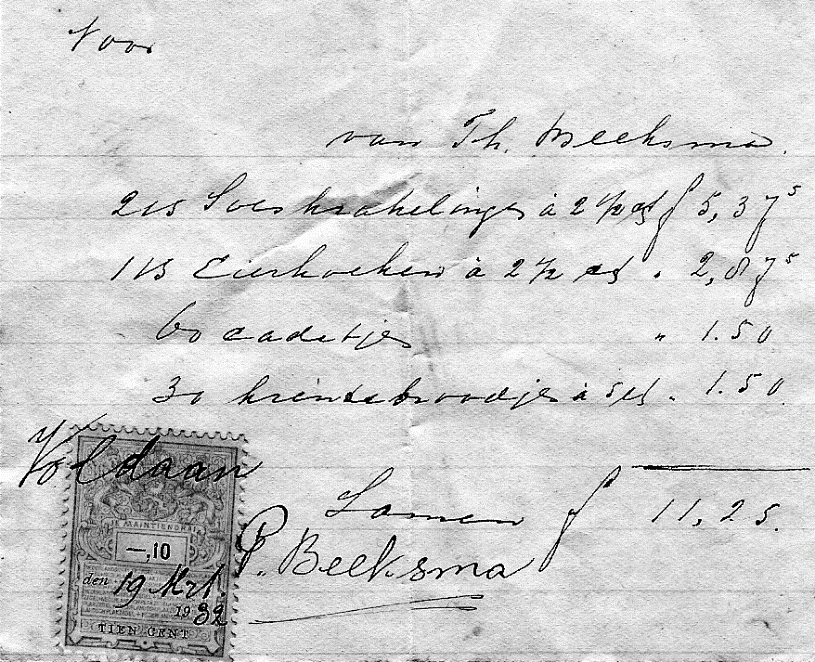 Voor
van Th. Beeksma.
215 Soeskrakelingen à 2½ ct f 5,37⁵
115 Eierkoeken à 2½ ct „ 2,87⁵
60 cadetjes „ 1.50
30 krintebroodjes à 5 ct „ 1.50
Voldaan
Samen f 11,25.
P. Beeksma
MAINTIENDRAI
—,10
den 19 Mrt.
1932
TIEN CENT